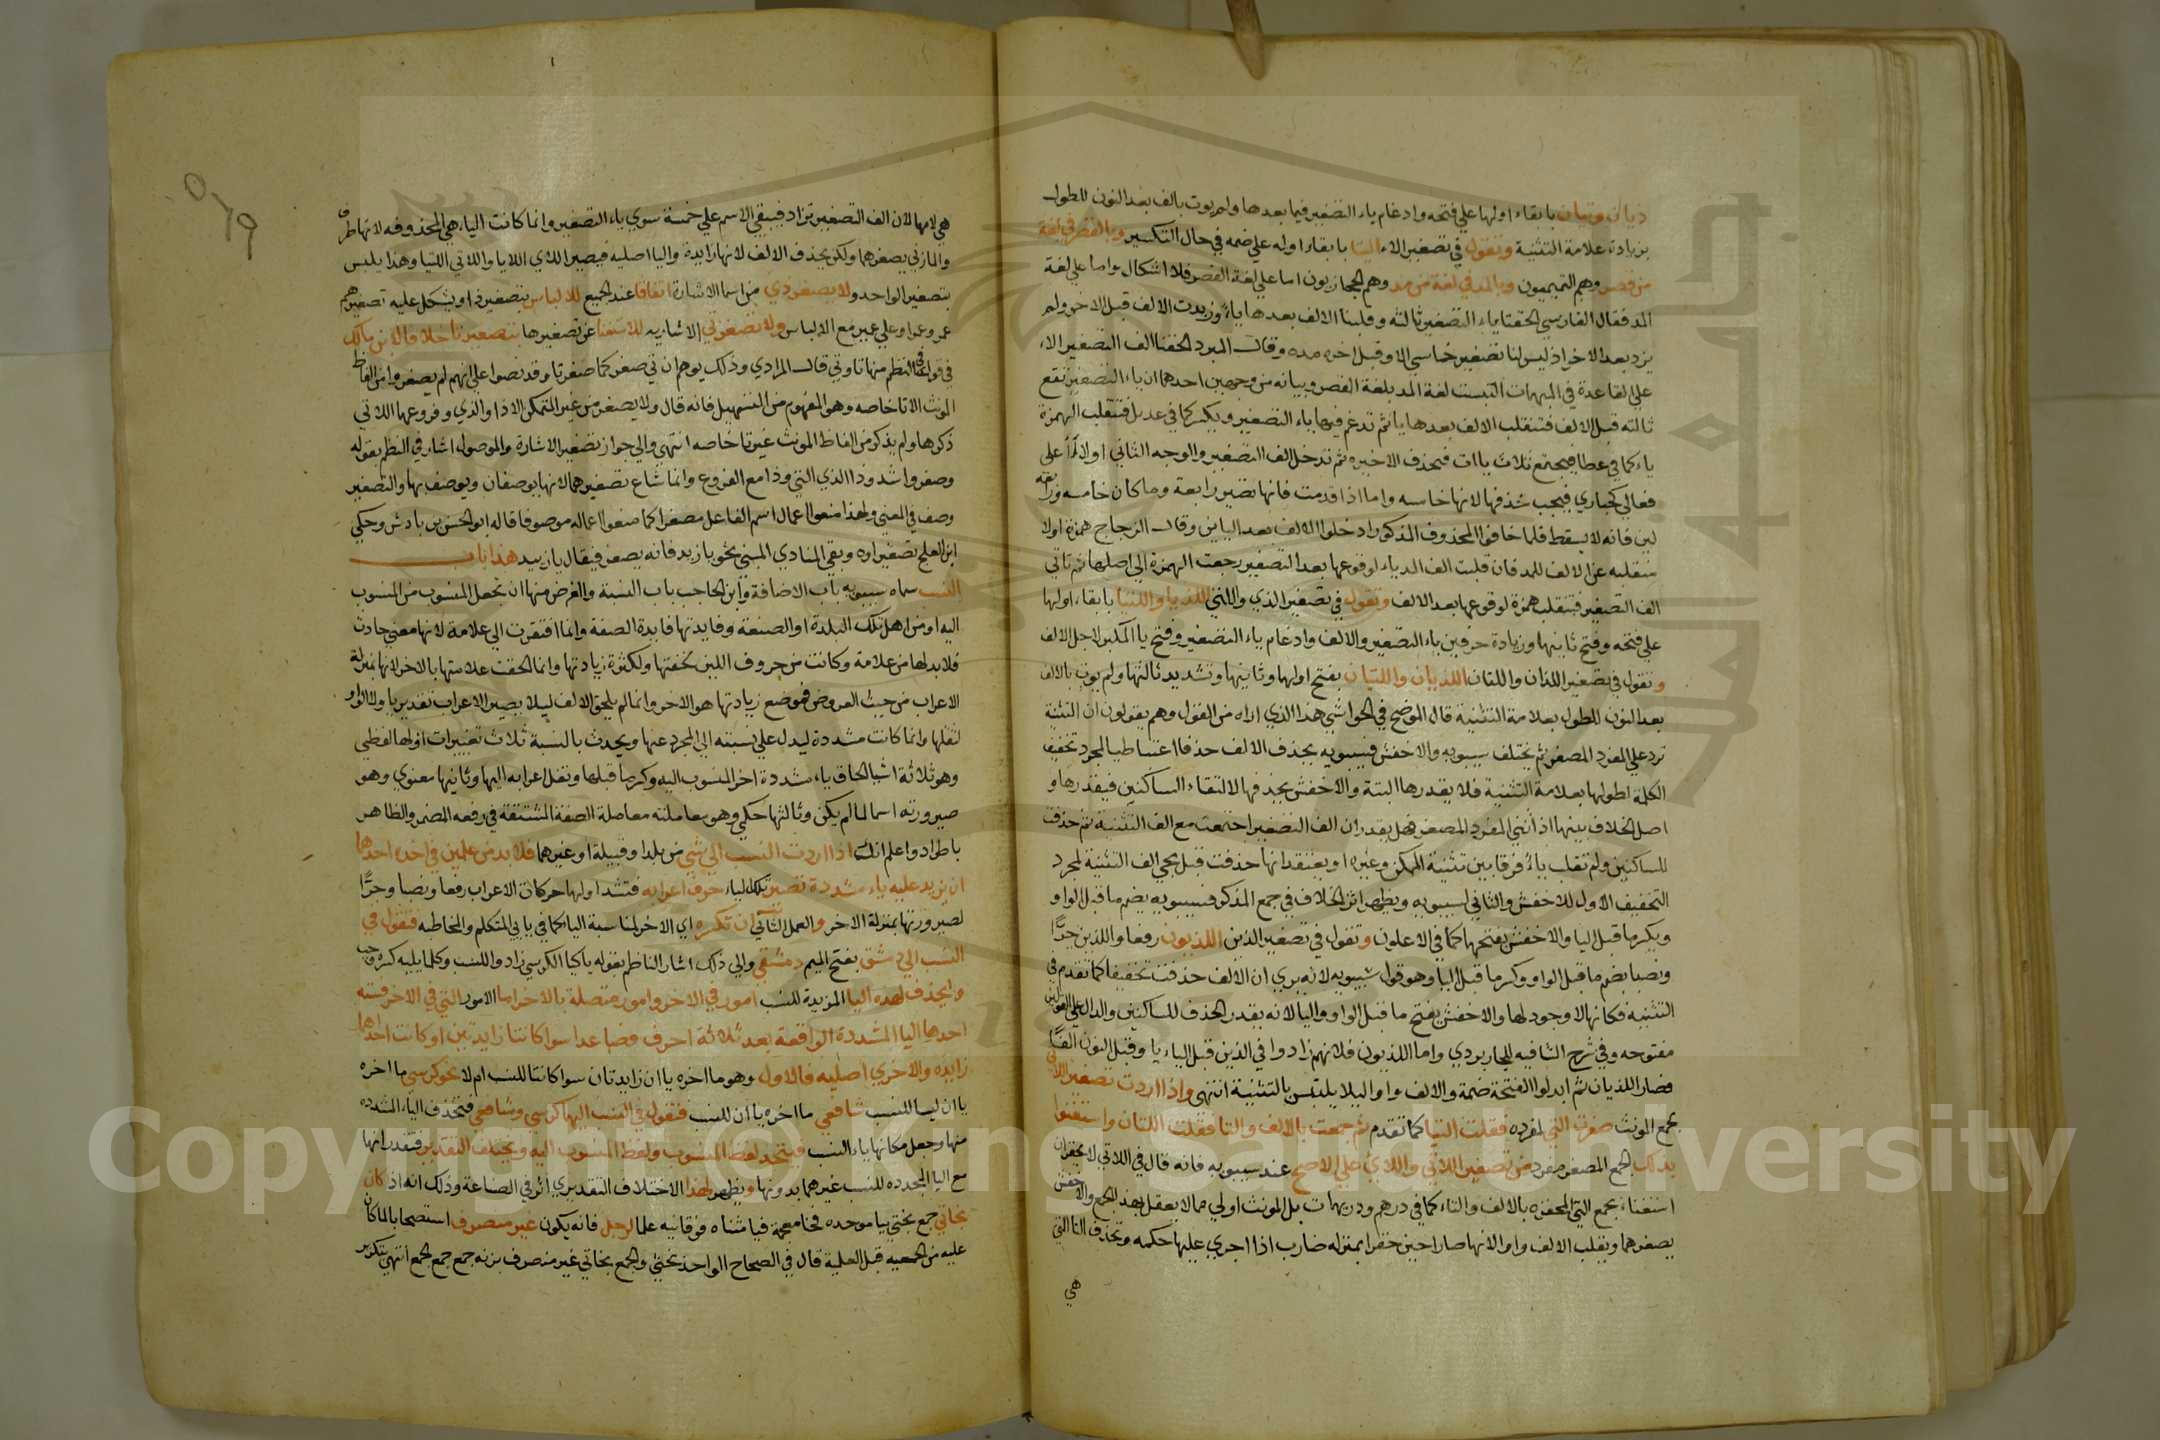 ذيان وتيان بابقاء اولها علي فتحه وادغام ياء التصغير فيما بعدها ولم يوت بالف بعد النون للطول
بزيادة علامة التثنية وتقول في تصغير الاء اليا بابقاء اوله علي ضمه في حال التكسير وبالقصر في لغة
من قصر وهم التميميون وبالمد في لغة من مد وهم الحجازيون اما علي لغة القصر فلا اشكال واما علي لغة
المد فقال الفارسي الحقنا ياء التصغير ثالثه وقلبنا الالف بعدها ياء وزيدت الالف قبل الاخر ولم
يزد بعد الاخر اذ ليس لنا تصغير خماسي الا وقبل اخره مده وقال المبرد الحقنا الف التصغير الاء
علي القاعدة في المبهمات التبست لغة المد بلغة القصر وبيانه من وجهين احدهما ان ياء التصغير تقع
ثالثه قبل الالف فتنقلب الالف بعدها يا ثم تدغم فيها ياء التصغير ويكسر كما في عديل فتنقلب الهمزة
ياء كما في عطا فيجتمع ثلاث يا ات فتحذف الاخيره ثم تدخل الف التصغير والوجه الثاني ان الاء علي
فعالي كحباري فيجب حذفها لانها خامسه واما اذا قدمت فانها تصير رابعة وما كان خامسه
لين فانه لا يسقط فلما خافوا المحذوف المذكور ادخلوا الالف بعد اليا ين وقال الزجاج همزة اولا
منقلبه عن الالف للمد فان قلبت الف الد ياء لوقوعها بعد التصغير رجعت الهمزة الي اصلها ثم تاتي
الف التصغير فتنقلب همزة لوقوعها بعد الالف وتقول في تصغير الذي والتي اللذيا واللتيا بابقاء اولها
علي فتحه وفتح ثانيها وزيادة حرفين ياء التصغير والالف وادغام ياء التصغير وفتح يا المكبر لاجل الالف
وتقول في تصغير اللذان واللتان اللذيان واللتيان بفتح اولها وثانيها وتشديد ثالثها ولم يوت بالالف
بعد النون للطول بعلامة التثنية قال الموضح في الحواشي هذا الذي اراه من القول وهم يقولون ان التثنية
ترد علي المفرد المصغر ثم يختلف سيبويه والاخفش فسيبويه يحذف الالف حذفا اعتباطيا لمجرد تخفيف
الكلمة لطولها بعلامة التثنية فلا يقدرها البتة والاخفش يحذفها لالتقاء الساكنين فيقدرها و
اصل الخلاف بينهما اذ اثني المفرد المصغر هل يقدر ان الف التصغير اجتمعت مع الف التثنية ثم حذفت
للساكنين ولم تقلب ياء فرقا بين تثنية المتمكن وغيره او يعتقد انها حذفت قبل مجي الف التثنية لمجرد
التخفيف الاول للاخفش والثاني لسيبويه ويظهر اثر الخلاف في جمع المذكر فسيبويه يضم ما قبل الواو
ويكسر ما قبل اليا والاخفش يفتحها كما في الاعلون وتقول في تصغير الذين اللذيون رفعا واللذين جرًا
ونصبا بضم ما قبل الواو وكسر ما قبل اليا وهو قول سيبويه لانه يري ان الالف حذفت تخفيفا كما تقدم في
التثنيه فكانها لا وجود لها والاخفش يفتح ما قبل الواو واليا لانه يقدر الحذف للساكنين والدال علي القولين
مفتوحه وفي شرح الشافيه للجاربردي واما اللذيون فلانهم زادوا في الذين قبل الياء يا وقبل النون الفًا
فصار اللذيان ثم ابدلوا الفتحة ضمة والالف واوا ليلا يلتبس بالتثنية انتهي واذا اردت تصغير اللاتي
جمع المونث صغرت التي لمفرده فقلت التيا كما تقدم ثم جمعت بالالف والتا فقلت اللتيات واستغنوا
بذلك الجمع المصغر مفرده من تصغير اللاتي واللاي علي الاصح عند سيبويه فانه قال في اللاتي لا يحقر ان
استغناء بجمع التي المحقره بالالف والتاء كما في درهم ودريهمات بل المونث اولي مما لا يعقل بهذا الجمع والاخفش
يصغرهما ويقلب الالف واوا لانها صارا حين حقرا بمنزله ضارب اذا اجري عليها حكمه وتحذف اليا التي
هي
٥١٩
هي لامها لان الف التصغير تزاد فيبقي الاسم علي خمسة سوي ياء التصغير وانما كانت الياء هي المحذوفه لانها طرف
والمازني يصغرهما ولكن يحذف الالف لانها زايدة واليا اصليه فيصير اللاي اللايا واللاتي اللتيا وهذا يلبس
بتصغير الواحد ولا يصغر ذي من اسما الاشارة اتفاقا عند الجميع للالباس بتصغير ذا ويشكل عليه تصغيرهم
عمر وعمرا وعلي عمير مع الالباس ولا تصغر تي الاشاريه للاستغنا عن تصغيرها بتصغير تا خلافا لابن مالك
في قوله في النظم منها تا وتي قال المرادي وذلك يوهم ان تي صغر كما صغر تا وقد نصوا علي انهم لم يصغروا من الفاظ
المونث الا تا خاصه وهو المفهوم من التسهيل فانه قال ولا يصغر من غير المتمكن الا ذا والذي وفروعها اللاتي
ذكرها ولم يذكر من الفاظ المونث غير تا خاصه انتهي والي جواز تصغير الاشارة والموصول اشار في النظم بقوله
وصغروا شذوذا الذي التي وذا مع الفروع وانما شاع تصغيرهما لانها يوصفان ويوصف بها والتصغير
وصف في المعني ولهذا منعوا اعمال اسم الفاعل مصغرا كما منعوا اعماله موصوفا قاله ابو الحسن بن بادش وحكي
ابن العلج تصغير اوه وبقي المنادي المبني نحو يا زيد فانه يصغر فيقال يا زييد هذا باب
النسب سماه سيبويه باب الاضافة وابن الحاجب باب النسبة والغرض منها ان تجعل المنسوب من المنسوب
اليه او من اهل تلك البلدة او الصنعة وفايدتها فايدة الصفة وانما افتقرت الي علامة لانها معني حادث
فلا بد لها من علامة وكانت من حروف اللين لخفتها ولكثرة زيادتها وانما الحقت علامتها بالاخر لانها بمنزلة
الاعراب من حيث العروض فموضع زيادتها هو الاخر وانما لم تلحق الالف ليلا يصير الاعراب تقديريا ولا الواو
لثقلها وانما كانت مشددة ليدل علي نسبته الي المجرد عنها ويحدث بالنسبة ثلاث تغييرات اولها لفظي
وهو ثلاثة اشيا الحاق ياء مشددة اخر المنسوب اليه وكسر ما قبلها ونقل اعرابه اليها وثانيها معنوي وهو
صيرورته اسما لما لم يكن وثالثها حكمي وهو معاملته معاملة الصفة المشتقة في رفعه المضمر والظاهر
باطراد واعلم انك اذا اردت النسب الي شي من بلد او قبيلة او غيرهما فلا بد من عملين في اخره احدهما
ان يزيد عليه ياء مشددة تصير تلك الياء حرف اعرابه فتشد اولها حركات الاعراب رفعا ونصبا وجرًا
لصيرورتها بمنزلة الاخر والعمل الثاني ان تكسره اي الاخر لمناسبة الياء كما في يا بي المتكلم والمخاطبه فتقول في
النسب الي دمشق بفتح الميم دمشقي والي ذلك اشار الناظم بقوله يا كيا الكرسي زاد واللنسب وكلما يليه كسره وجب
ويحذف لهذه اليا المزيدة للنسب امور في الاخر وامور متصلة بالاخر اما الامور التي في الاخر فسته
احدها اليا المشددة الواقعة بعد ثلاثة احرف فصاعدا سوا كانتا زايدتين او كانت احداهما
زايده والاخري اصليه فالاول وهو ما اخره يا ان زايدتان سوا كانتا للنسب ام لا نحو كرسي ما اخره
يا ان ليسا للنسب شافعي ما اخره يا ان للنسب فتقول في النسب اليها كرسي وشافعي فتحذف الياء المشدده
منها وجعل مكانها ياء النسب فيتحد لفظ المنسوب ولفظ المنسوب اليه ويختلف التقدير فتقدر انها
مع اليا المجدده للنسب غيرهما بدونها ويظهر لهذا الاختلاف التقديري اثر في الصناعة وذلك انه اذ كان
بخاتي جمع بختي بيا موحده فخا معجمة فيا مثناه فوقانيه علما لرجل فانه يكون غير منصرف استصحابا لما كان
عليه من الجمعيه قبل العلمية قال في الصحاح الواحد بختي والجمع بخاتي غير منصرف بزنه جمع جمع الجمع انتهي بتكرير
Copyright © King Saud University